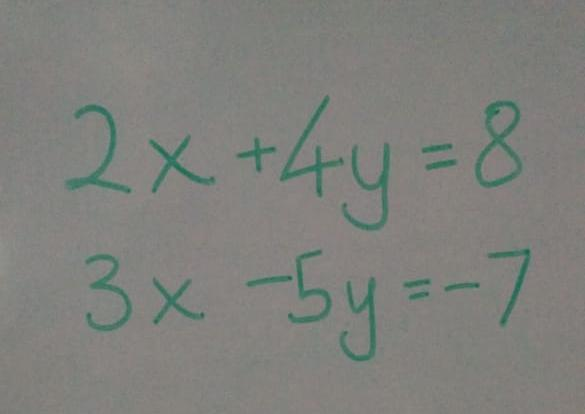 2x +4y = 8
3x -5y = -7